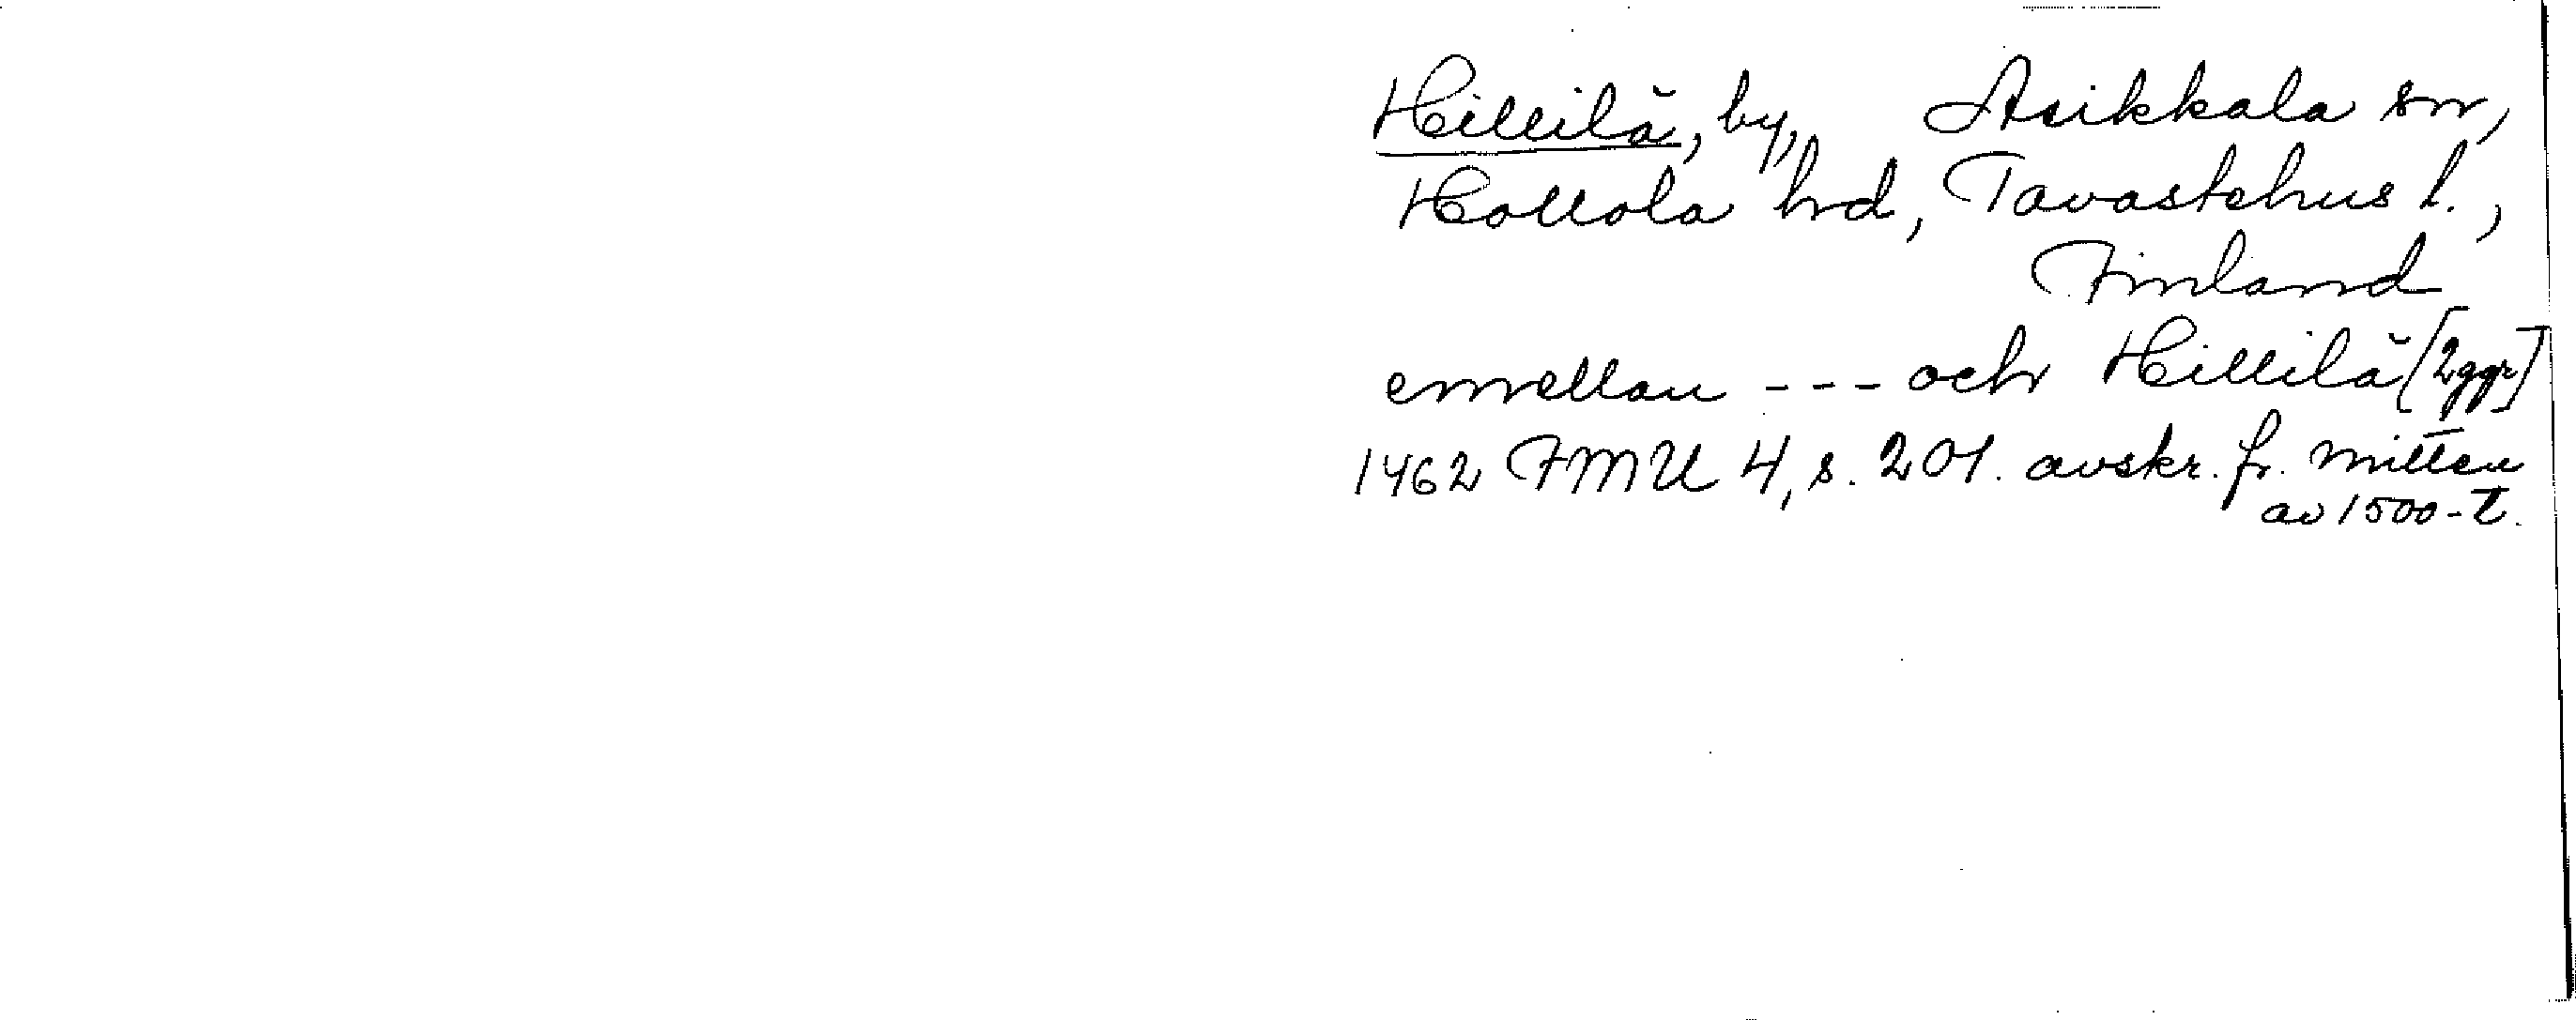 Hillilä, by, Asikkala sn,
Hollola hd, Tavastehus l.,
Finland
emellan --- och Hillilä [2 ggr]
1462 FMU 4, s. 201. avskr. fr. mitten
av 1500-t.